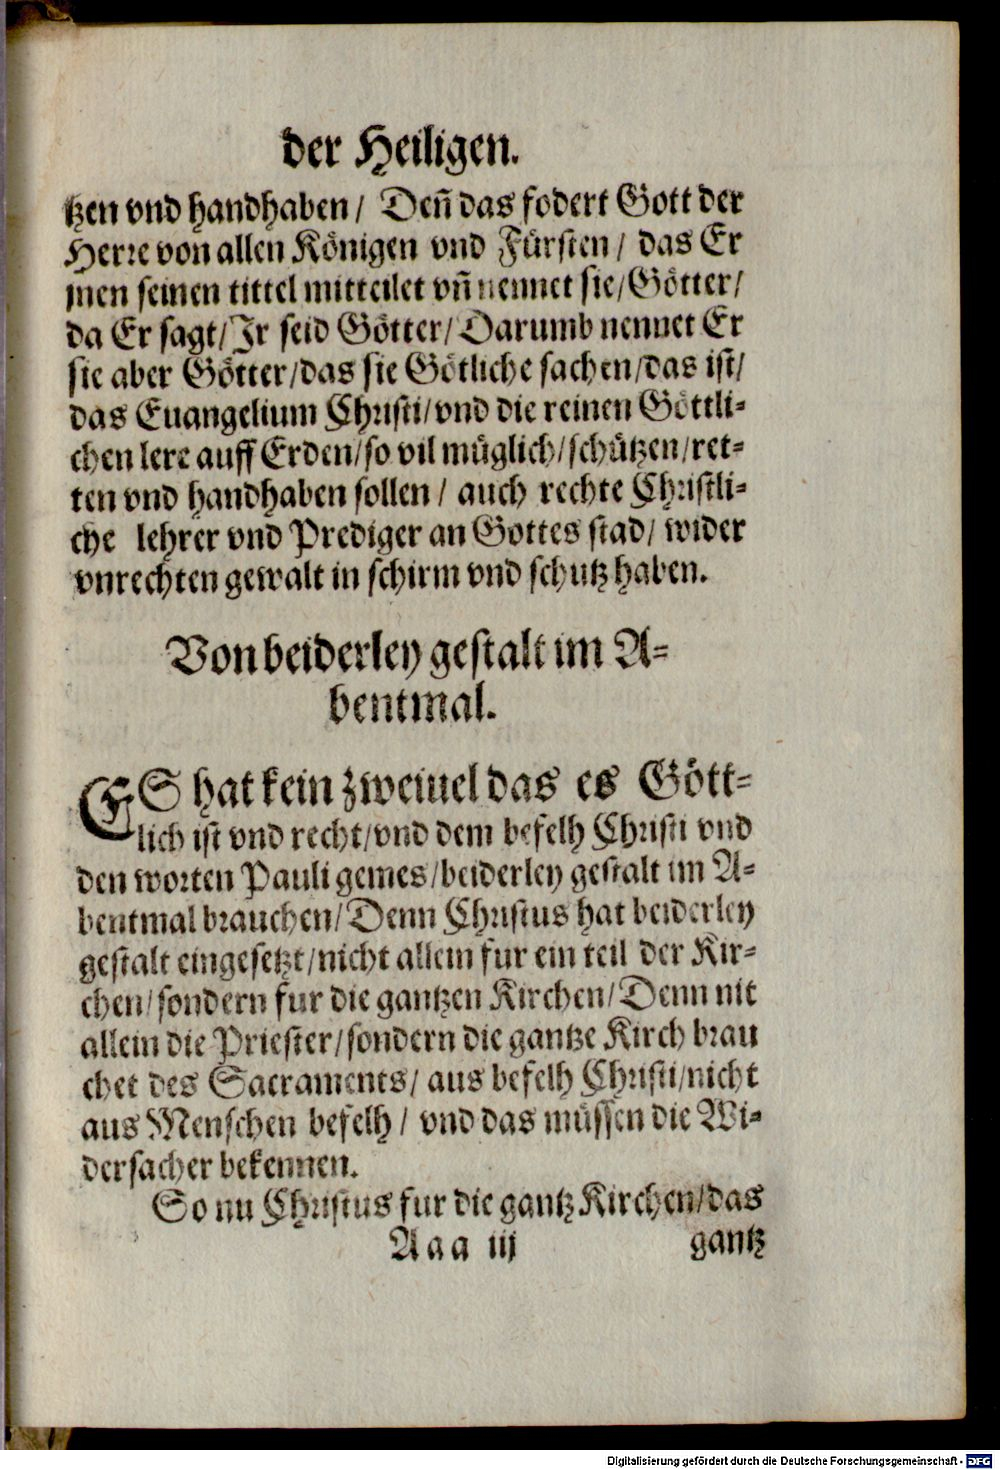 der Heiligen.
tzen vnd handhaben / Deñ das fodert Gott der
Herre von allen Königen vnd Fürsten / das Er
jnen seinen tittel mitteilet vñ nennet sie/Götter/
da Er sagt/Jr seid Götter/Darumb nennet Er
sie aber Götter/das sie Götliche sachen/das ist/
das Euangelium Christi/vnd die reinen Göttli-
chen lere auff Erden/so vil müglich/schützen/ret-
ten vnd handhaben sollen / auch rechte Christli-
che lehrer vnd Prediger an Gottes stad/ wider
vnrechten gewalt in schirm vnd schutz haben.
Von beiderley gestalt im A-
bentmal.
ES hat kein zweiuel das es Gött-
lich ist vnd recht/vnd dem befelh Christi vnd
den worten Pauli gemes/beiderley gestalt im A-
bentmal brauchen/Denn Christus hat beiderley
gestalt eingesetzt/nicht allein fur ein teil der Kir-
chen/sondern fur die gantzen Kirchen/Denn nit
allein die Priester/sondern die gantze Kirch brau
chet des Sacraments/ aus befelh Christi/nicht
aus Menschen befelh / vnd das müssen die Wi-
dersacher bekennen.
So nu Christus fur die gantz Kirchen/das
Aaa iij gantz
Digitalisierung gefördert durch die Deutsche Forschungsgemeinschaft - DFG